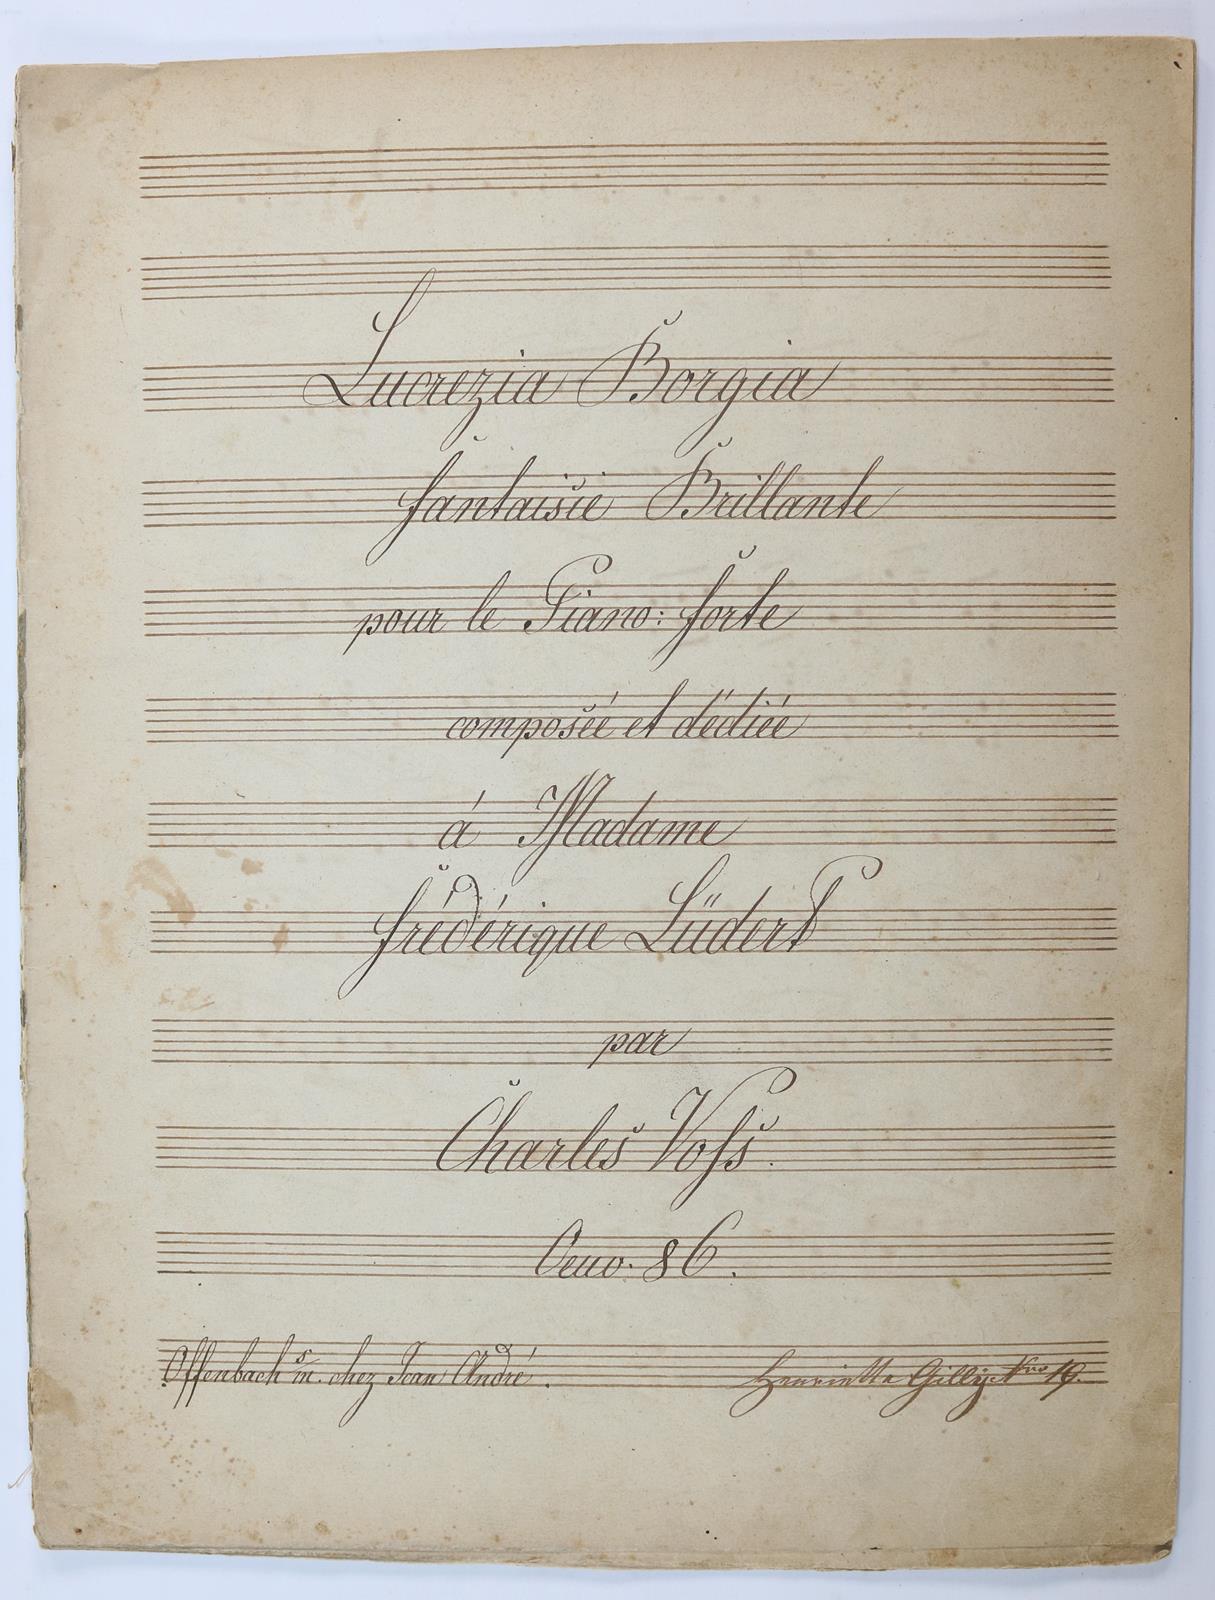 Lucrezia Borgia
Fantaisie Brillante
pour le Piano: Forte
composée et dédiée
á Madame
Frédérique Lüdert
par
Charles Voſs.
Oeuv. 86.
Offenbach s/m. chez Jean André.
Henrietta Gilly. Nro 19.